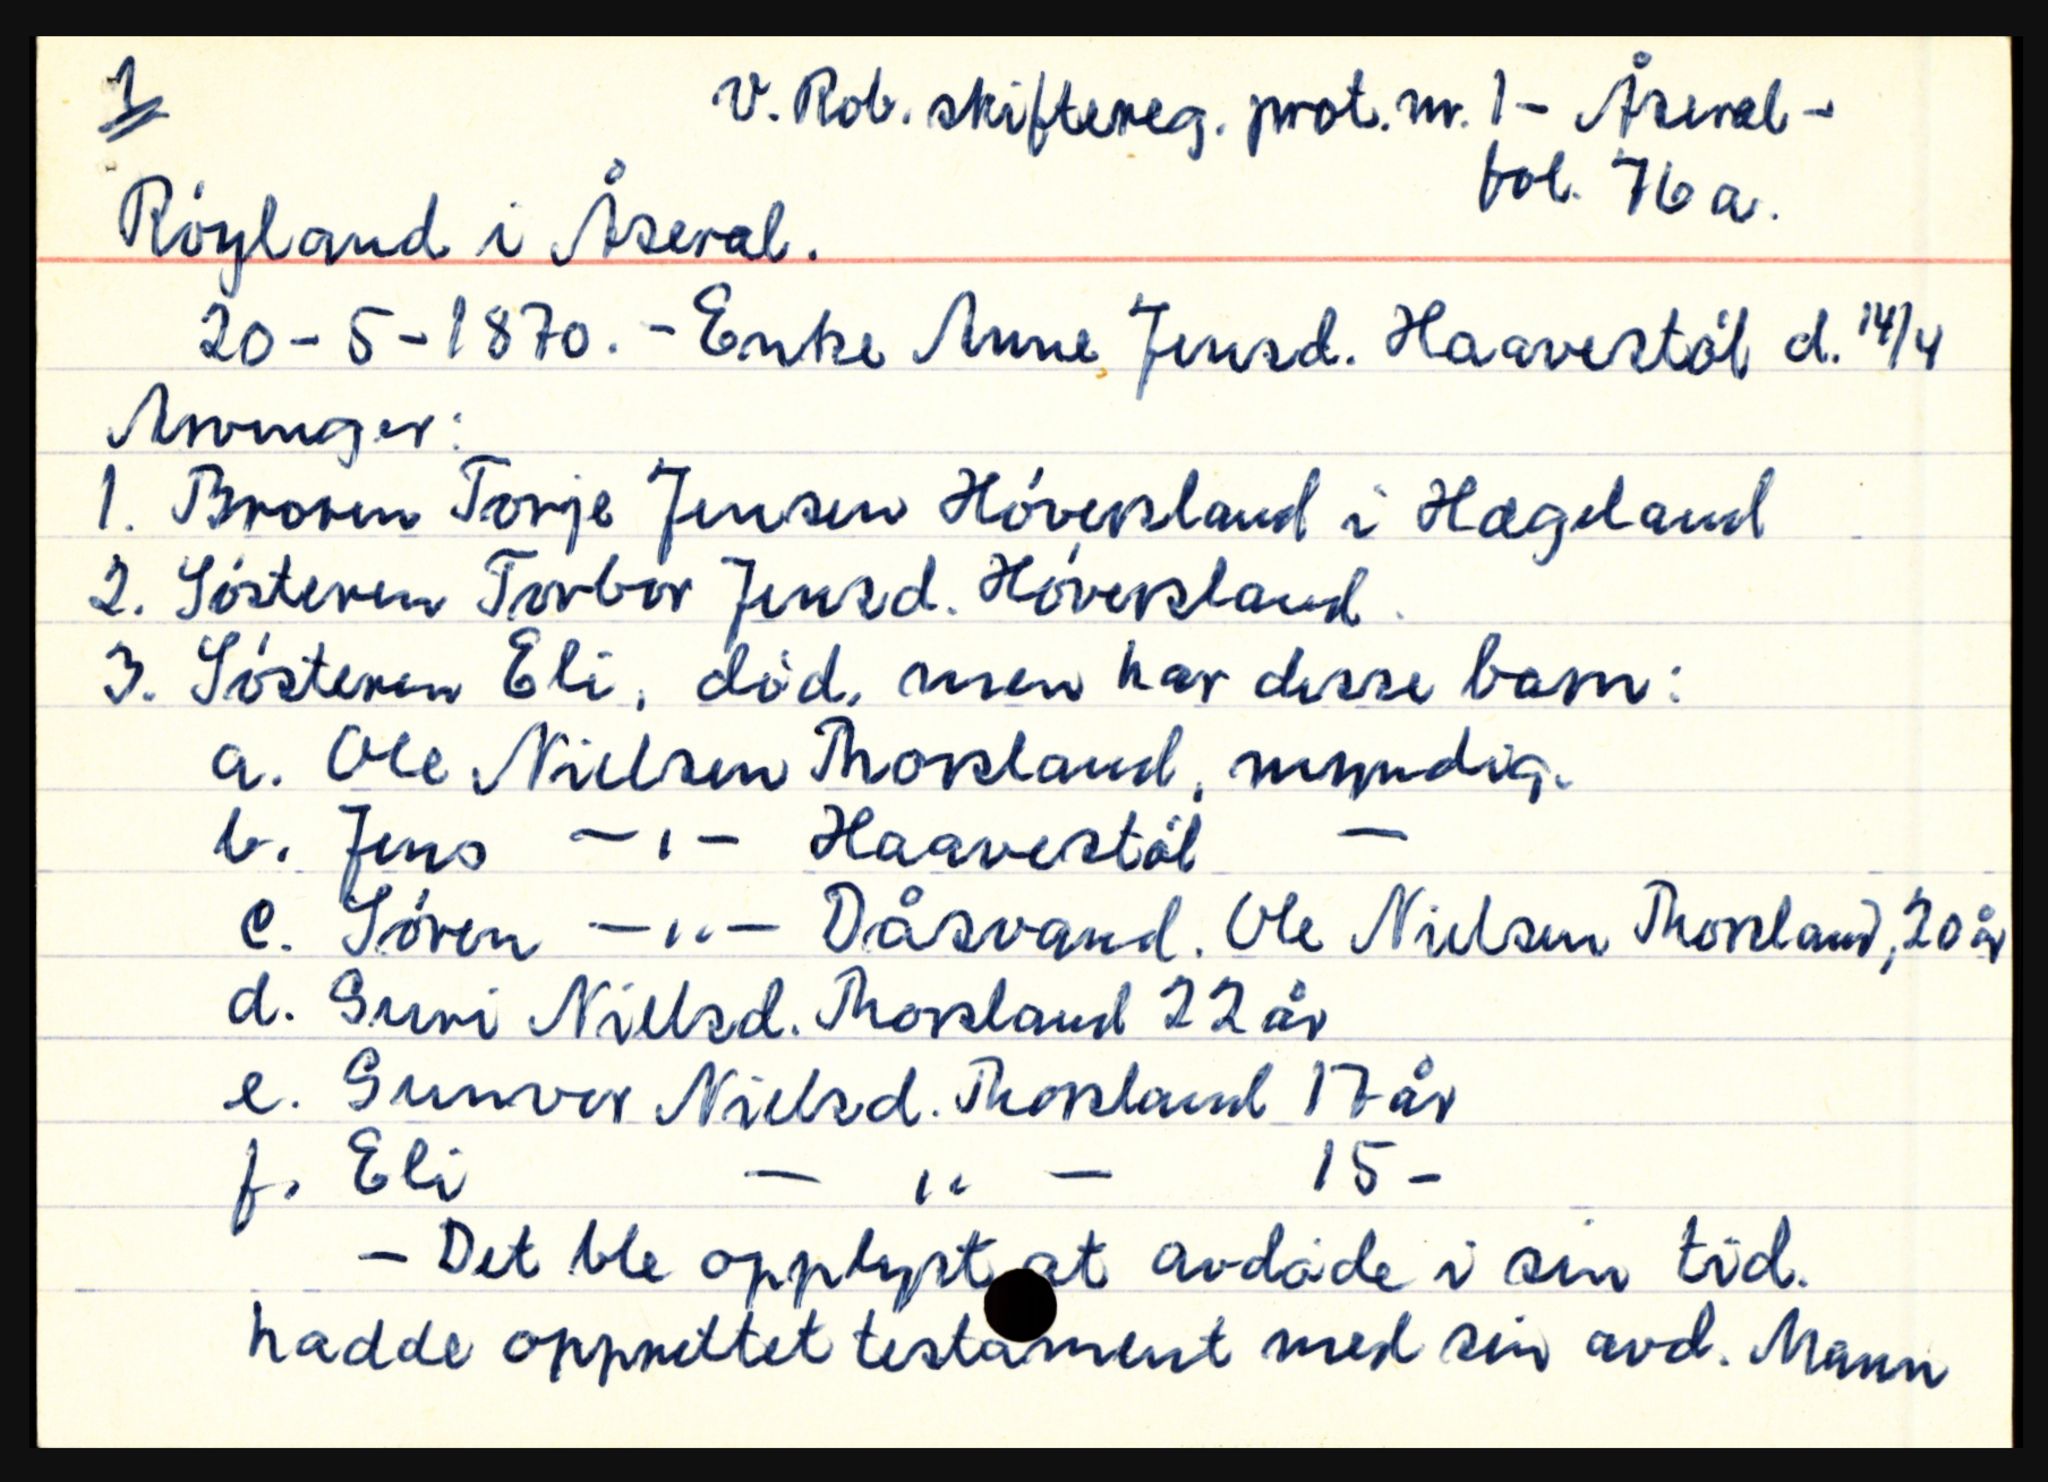 1
V. Rob. skiftereg. prot. nr. 1 - Åseral -
fol. 76a.
Röyland i Åseral.
20-5-1870. - Enke Anne Jensd. Haavestöl d. 14/4
Arvinger:
1. Broren Torje Jensen Höversland i Hægeland
2. Sösteren Torbor Jensd. Höversland.
3. Sösteren Eli, död, men har disse barn:
a. Ole Nielsen Thorsland, myndig.
b. Jens - " - Haavestöl -
c. Sören - " - Dåsvand. Ole Nielsen Thorsland, 20 år
d. Guri Nielsd. Thorsland 22 år
e. Gunvor Nielsd. Thorsland 17 år
f. Eli - " - 15 -
- Det ble opplyst at avdöde i sin tid.
hadde opprettet testament med sin avd. Mann